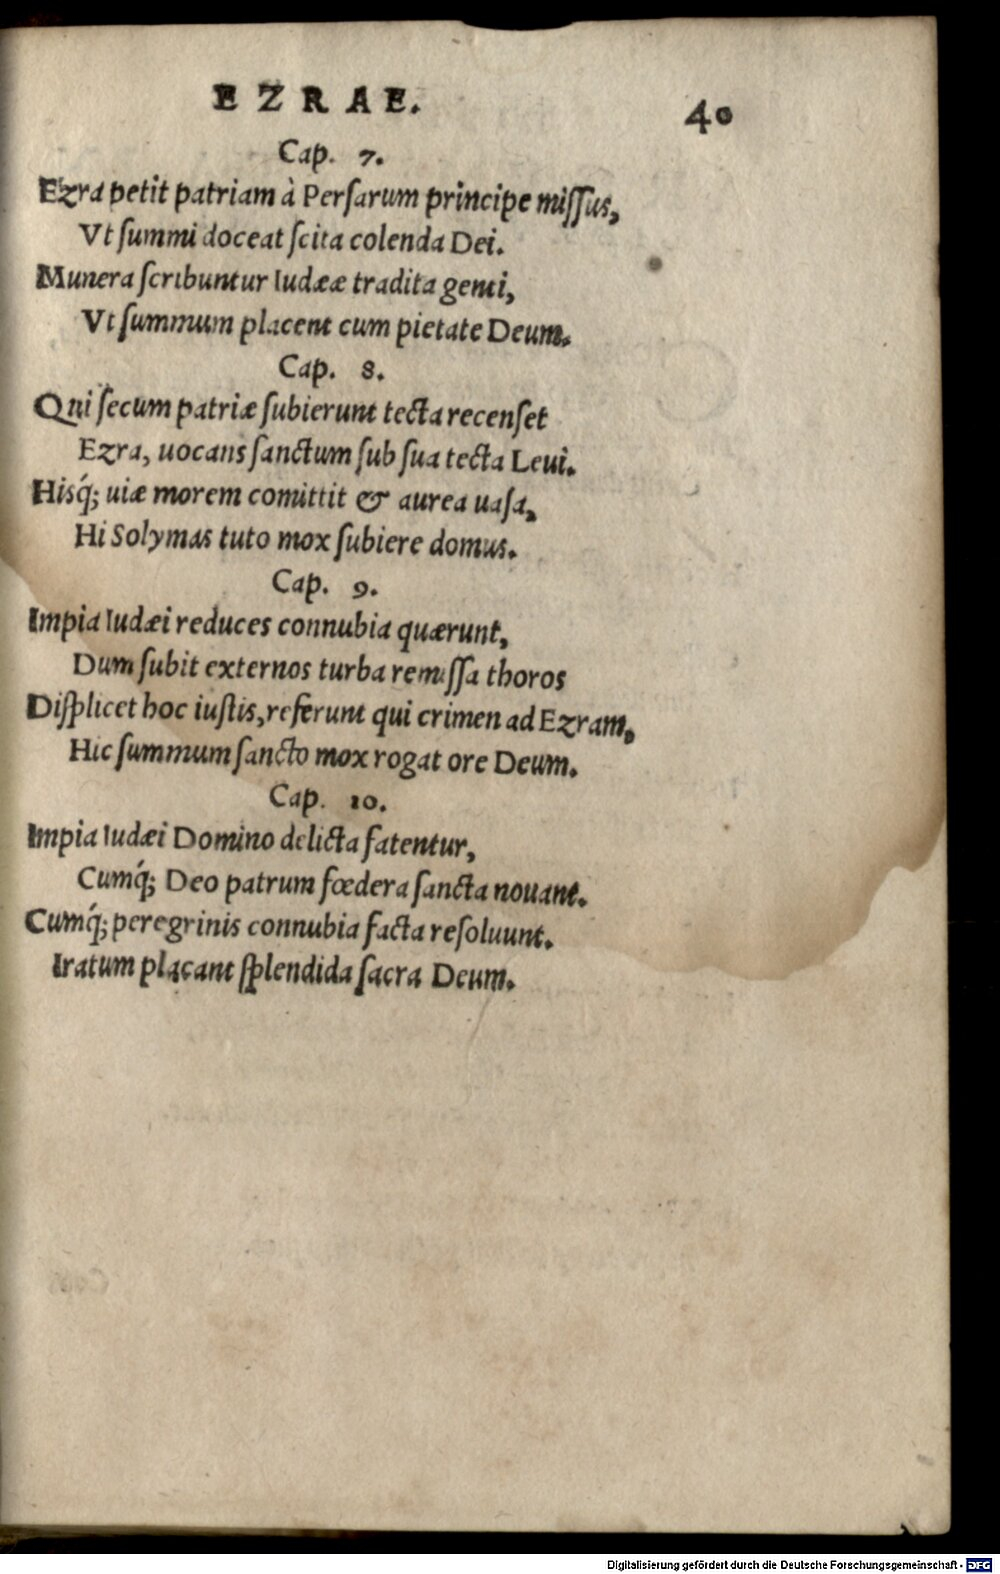 EZRAE.
40
Cap. 7.
Ezra petit patriam à Perſarum principe miſſus,
Vt ſummi doceat ſcita colenda Dei.
Munera ſcribuntur Iudææ tradita genti,
Vt ſummum placent cum pietate Deum.
Cap. 8.
Qui ſecum patriæ ſubierunt tecta recenſet
Ezra, uocans ſanctum ſub ſua tecta Leui.
Hisq́; uiæ morem comittit & aurea uaſa,
Hi Solymas tuto mox ſubiere domus.
Cap. 9.
Impia Iudæi reduces connubia quærunt,
Dum ſubit externos turba remiſſa thoros
Diſplicet hoc iuſtis, referunt qui crimen ad Ezram,
Hic ſummum ſancto mox rogat ore Deum.
Cap. 10.
Impia Iudæi Domino delicta fatentur,
Cumq́; Deo patrum fœdera ſancta nouant.
Cumq́; peregrinis connubia facta reſoluunt.
Iratum placant ſplendida ſacra Deum.
Digitalisierung gefördert durch die Deutsche Forschungsgemeinschaft - DFG